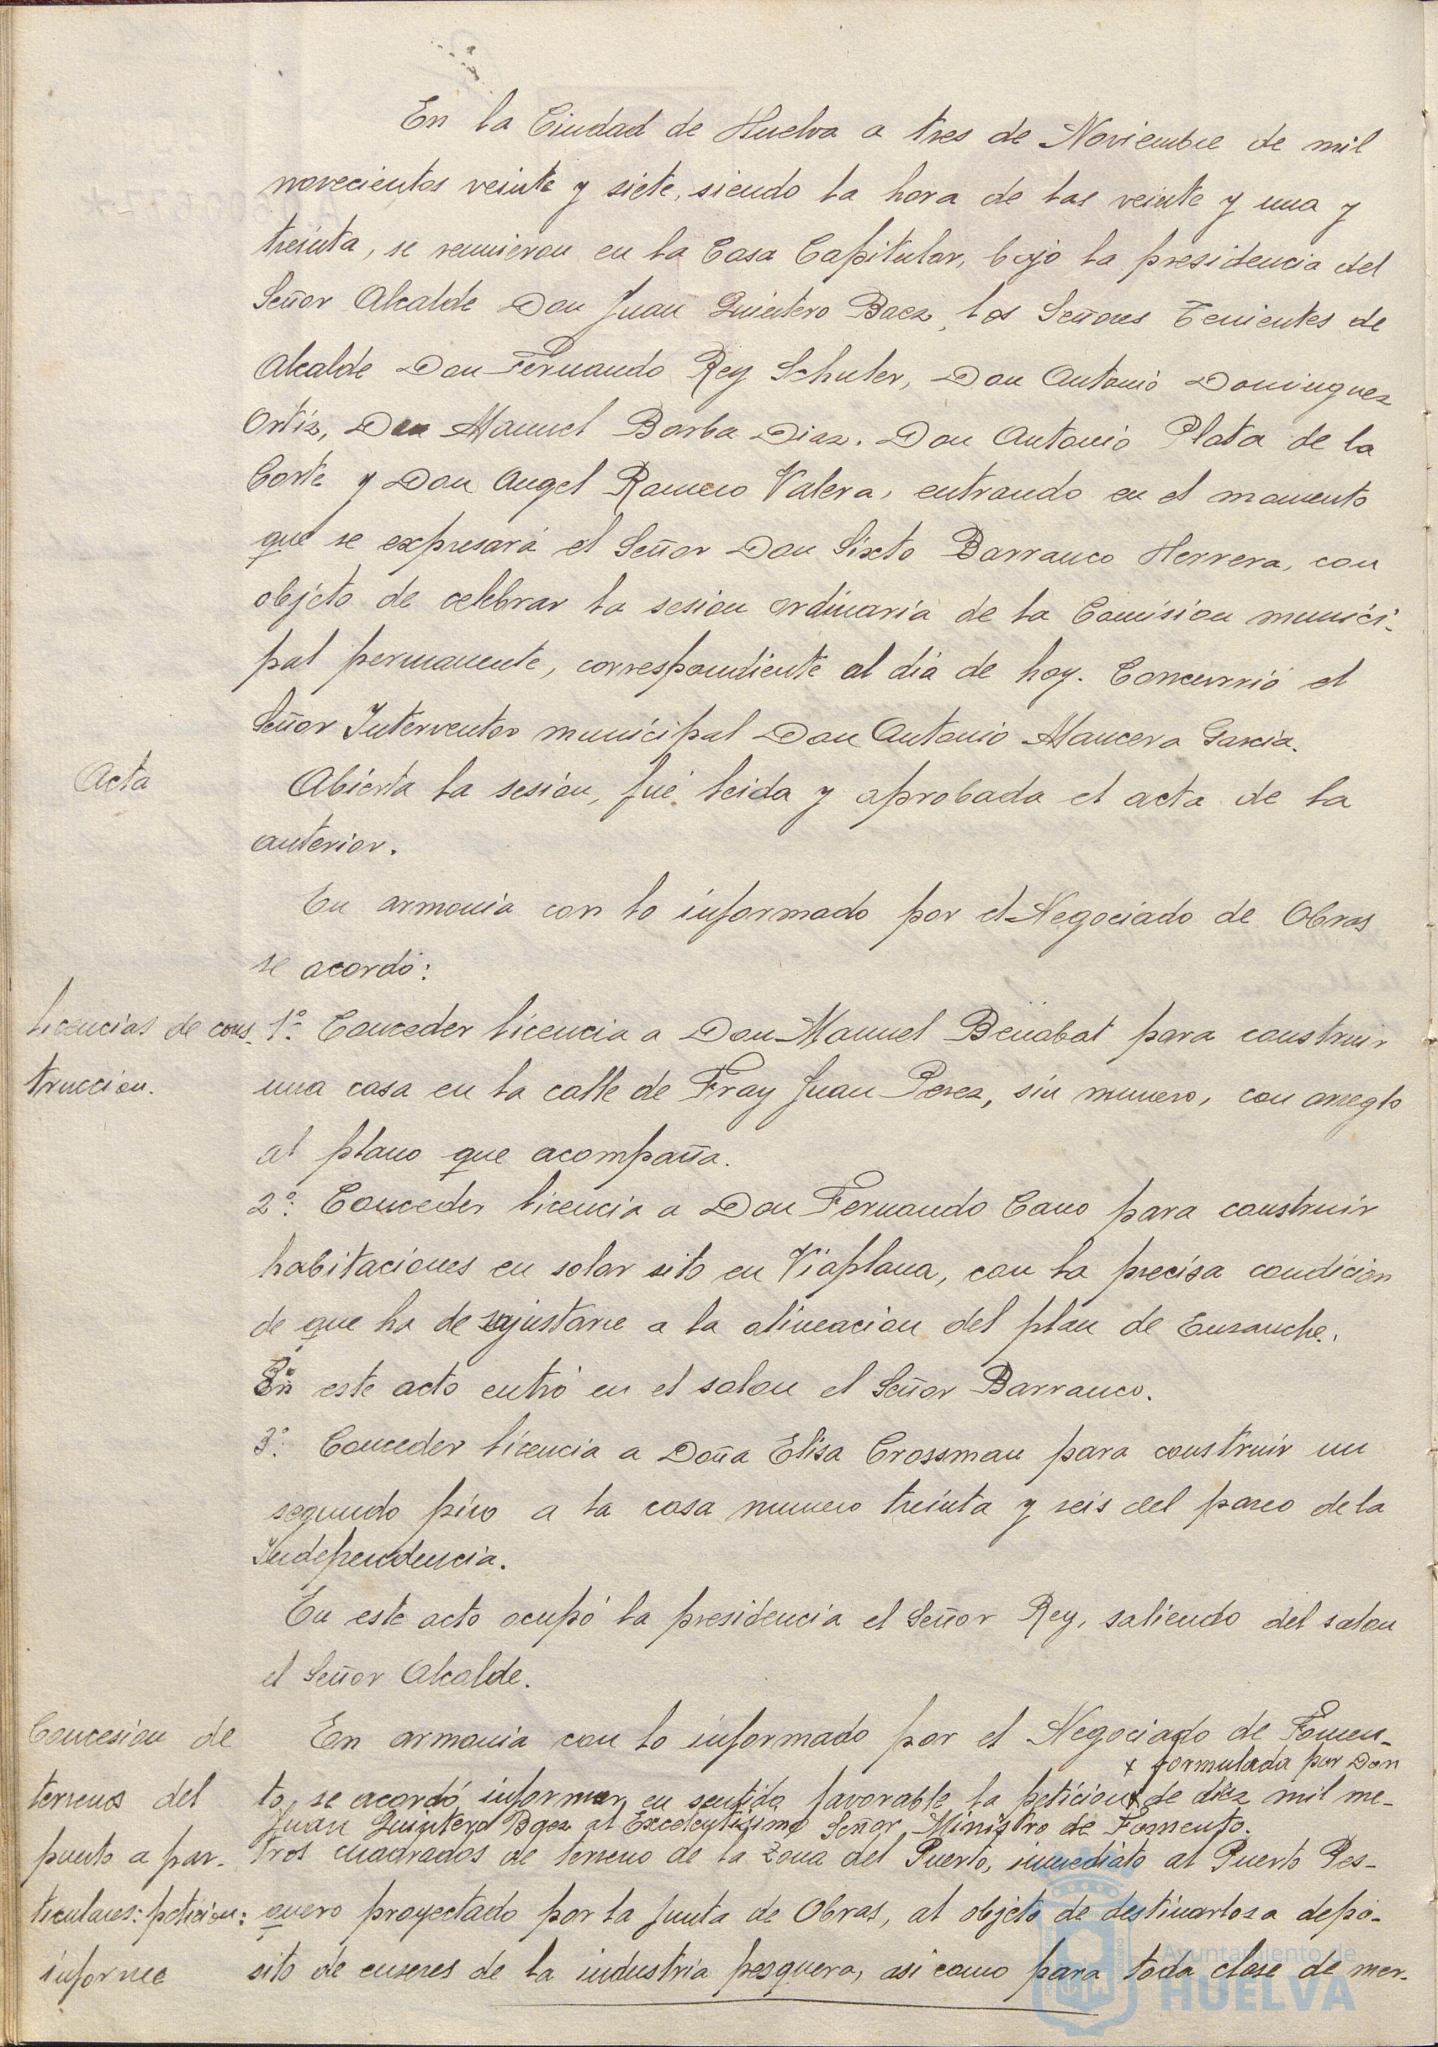 En la Ciudad de Huelva a tres de Noviembre de mil
novecientos veinte y siete, siendo la hora de las veinte y una y
treinta, se reunieron en la Casa Capitular, bajo la presidencia del
Señor Alcalde Don Juan Quintero Baez, los Señores Tenientes de
Alcalde Don Fernando Rey Schuler, Don Antonio Dominguez
Ortiz, Don Manuel Barba Diaz. Don Antonio Plata de la
Corte y Don Angel Romero Valera, entrando en el momento
que se expresará el Señor Don Sixto Barranco Herrera, con
objeto de celebrar la sesion ordinaria de la Comision munici-
pal permanente, correspondiente al dia de hoy. Concurrió el
Señor Interventor municipal Don Antonio Mancera Garcia.
Acta
Abierta la sesión, fué leida y aprobada el acta de la
anterior.
En armonia con lo informado por el Negociado de Obras
se acordó:
Licencias de cons-
truccion.
1º. Conceder licencia a Don Manuel Benabat para construir
una casa en la calle de Fray Juan Perez, sin numero, con arreglo
al plano que acompaña.
2º. Conceder licencia a Don Fernando Cano para construir
habitaciones en solar sito en Viaplana, con la precisa condicion
de que ha de ajustarse a la alineacion del plan de Ensanche.
En este acto entró en el salon el Señor Barranco.
3º. Conceder licencia a Doña Elisa Crossman para construir un
segundo piso a la casa numero treinta y seis del paseo de la
Independencia.
En este acto ocupó la presidencia el Señor Rey, saliendo del salon
el Señor Alcalde.
Concesion de
terrenos del
puerto a par-
ticulares: peticion:
informe
En armonia con lo informado por el Negociado de Fomen-
x formulada por Don
to, se acordó informar en sentido favorable la peticion x de diez mil me-
Juan Quintero Baez al Excelentisimo Señor Ministro de Fomento.
tros cuadrados de terreno de la Zona del Puerto, inmediato al Puerto Pes-
quero proyectado por la Junta de Obras, al objeto de destinarlos a depó-
sito de enseres de la industria pesquera, asi como para toda clase de mer-
Ayuntamiento de
HUELVA